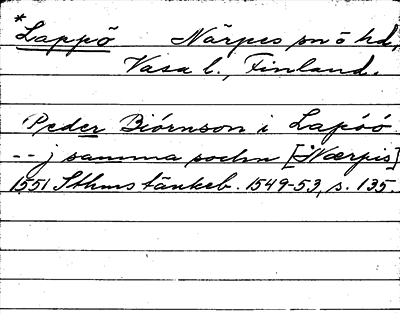 * Lappö Närpes sn o hd,
Vasa l., Finland.
Peder Biórnson i Lapóó
-- j samma sochn [Nærpis]
1551 Sthms tänkeb. 1549-53, s. 135.